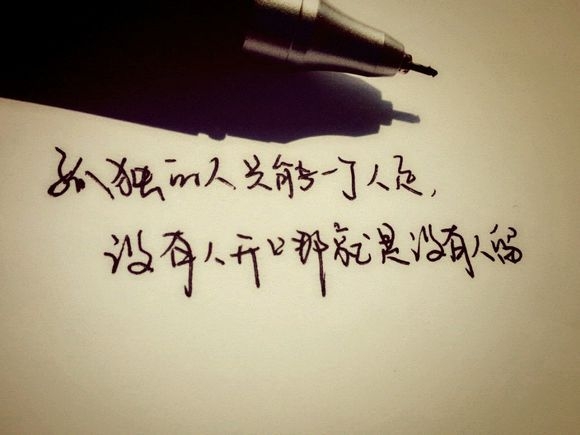 孤独的人只能一个人走,
没有人开口那就是没有人留